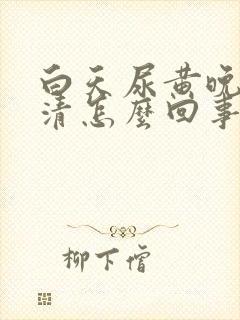 白天尿黄晚
清怎麼回事
柳下惲